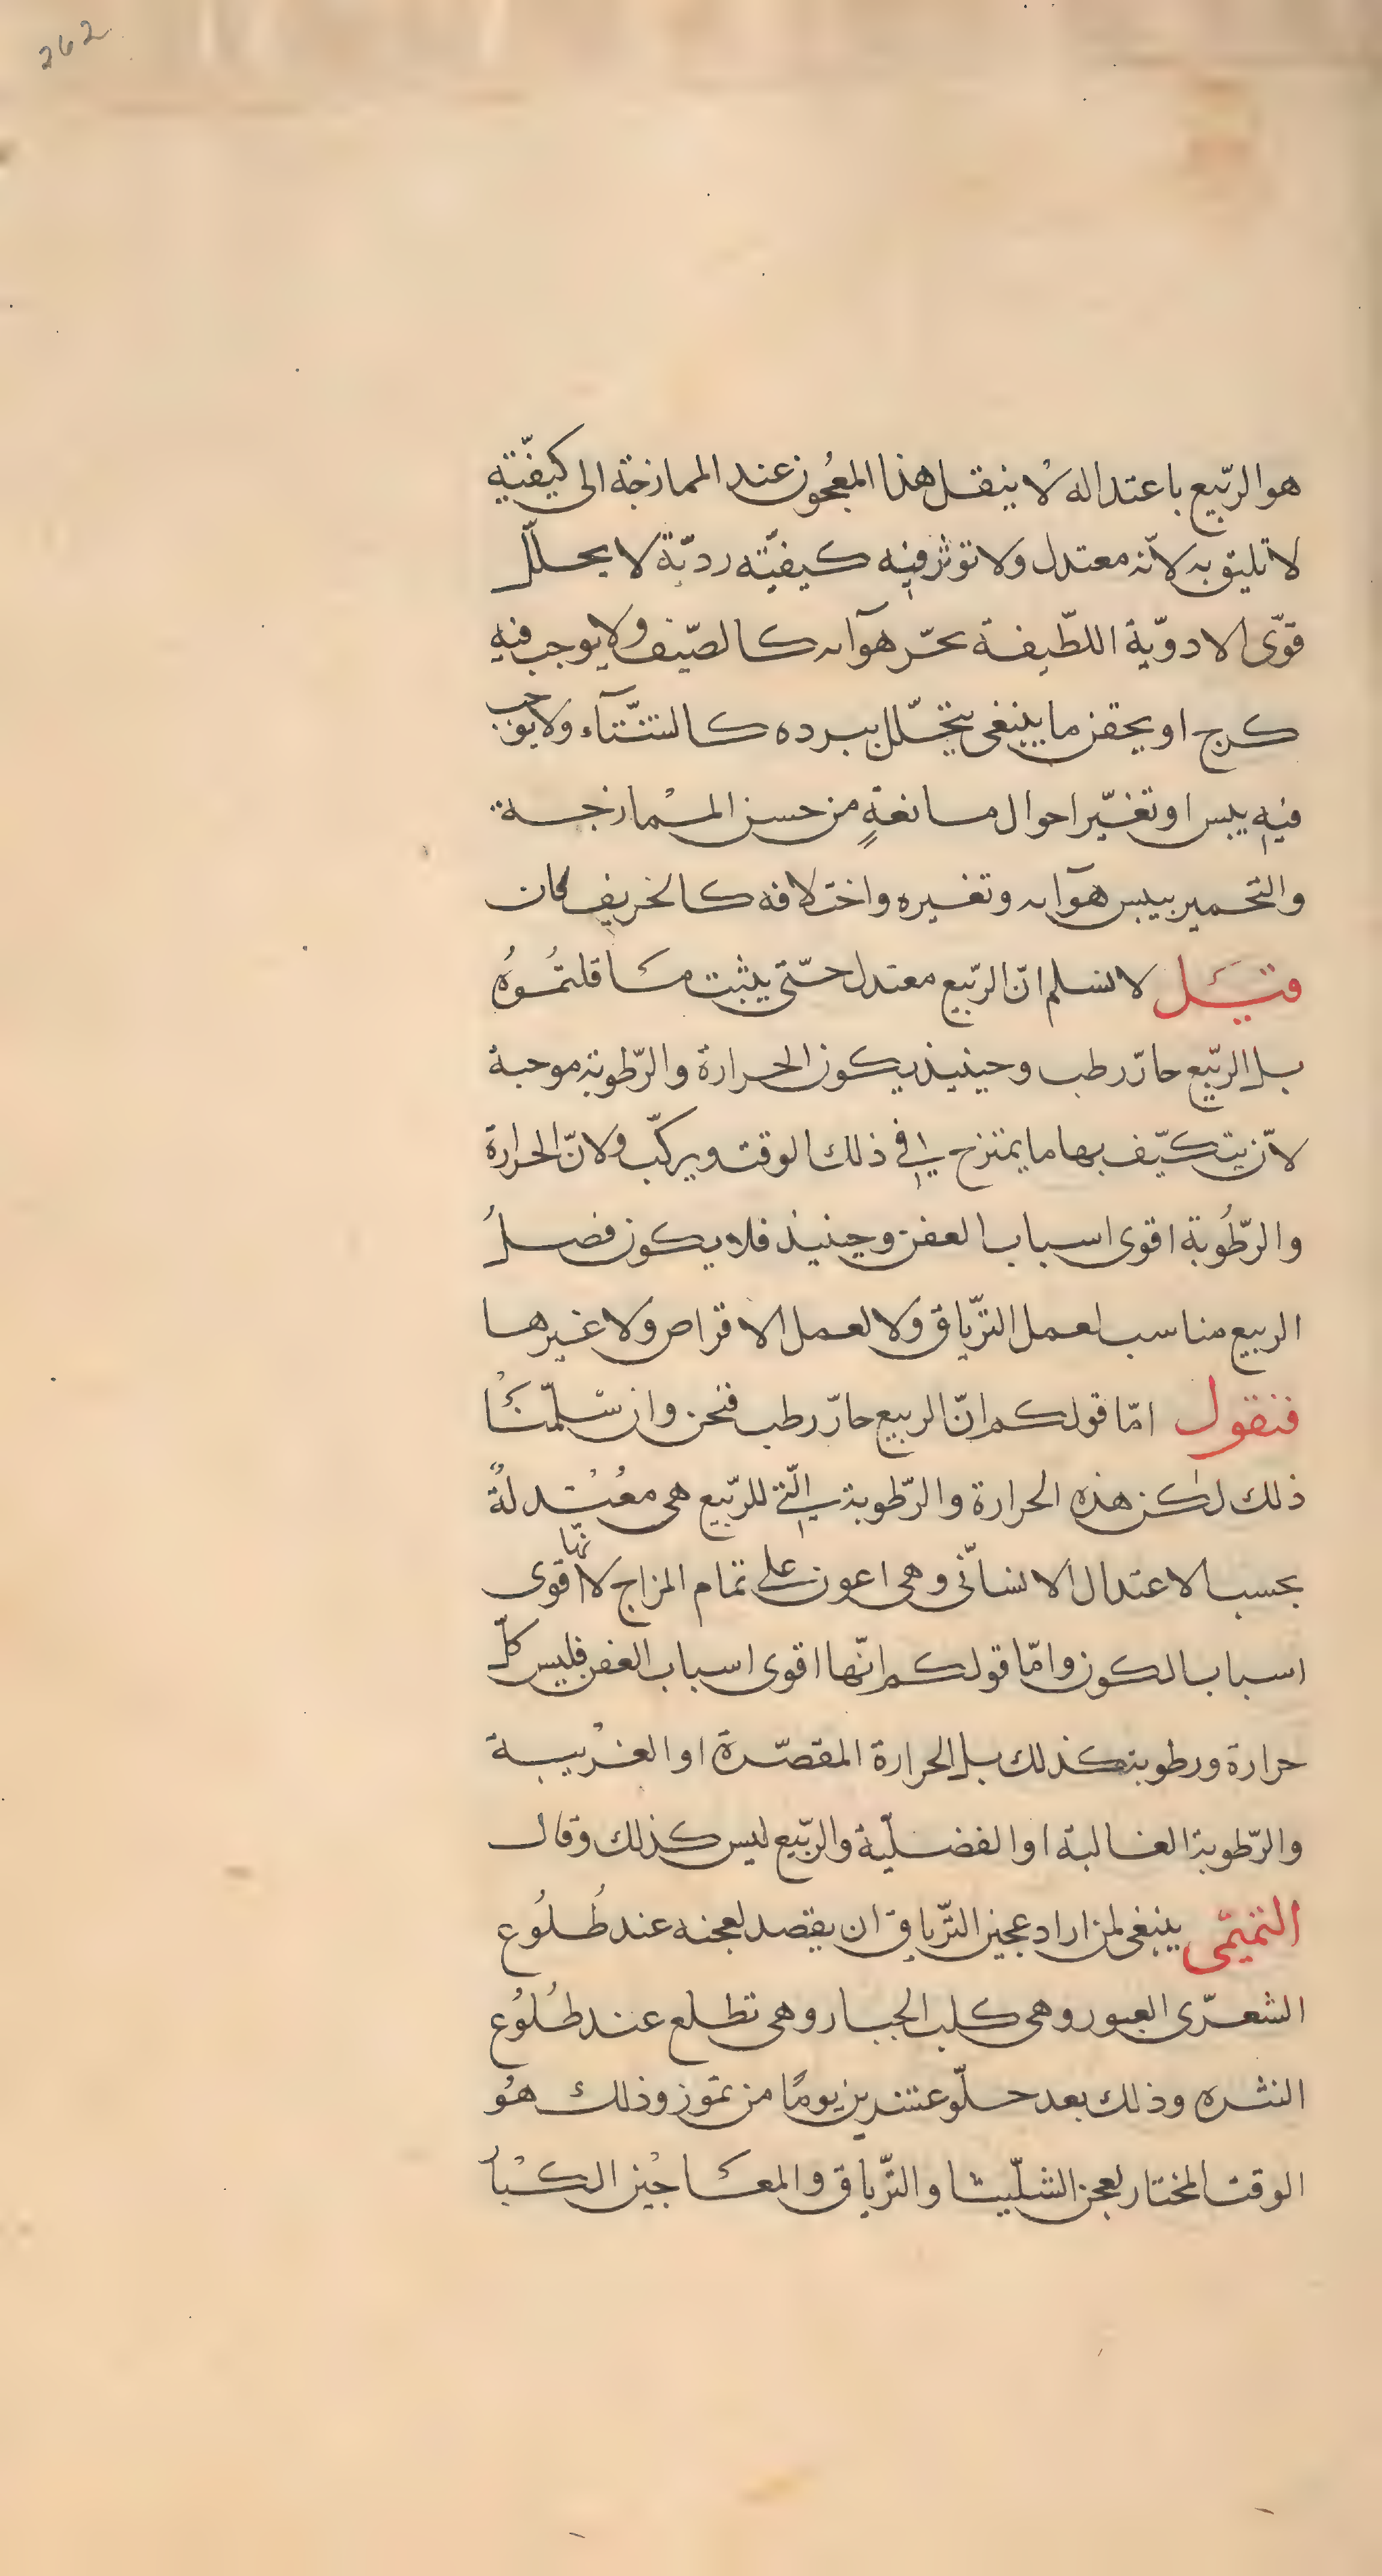 262
هو الرّبيع باعتداله لا ينقل هذا المعجون عند الممازجة الى كيفيّته
لا تليق به لانّه معتدل ولا توثر فيه كيفيّته رديّة لا يحللّ
قوّى الادويّة اللطّيفة بحّر هوآىه كالصّيف ولا يوجب فيه
كرج او يحقن ما ينبغى يتحّلل ببرده كالشّتآء ولا يوجب
فيه يبس او تغيّر احوال مانعةٍ من حسن الممازجة
والتخمير بيبس هوآىه وتغيره واختلافه كالخريف فان
قيل لا نسلم انّ الرّبيع معتدل حتّى يثبت ما قلتُموُه
بل الرّبيع حارّ رطب وحينيذ يكون الحرارة والرّطوبة موجبة
لان يتكيّف بها ما يمتزج فى ذلك الوقت ويركّب ولانّ الحرارة
والرّطُوبة اقوى اسباب العفن وحينيذ فلا يكون فصلُ
الربيع مناسب لعمل التّرياق ولا لعمل الاقراص ولا غيرها
فنقول امّا قولكم انّ الربيع حارّ رطب فنحن وان سلّمنا
ذلك لكن هذه الحرارة والرّطوبة الّتى للرّبيع هى معُتدلةً
بحسب الاعتدال الانسانّى وهى اعون على تمام المزاج لانّها اقوى
اسباب الكون وامّا قولكم انّها اقوى اسباب العفن فليس كلّ
حرارة ورطوبة كذلك بل الحرارة المقصّرة او الغريبة
والرّطوبة الغالبة او الفضليّة والرّبيع ليس كذلك وقال
التميّمى ينبغى لمن اراد عجين التّرياق ان يقصد لعجنه عند طُلُوع
الشعرّى العبور وهى كلب الجبار وهى تطلع عند طُلُوُع
النثره وذلك بعد حلّو عشرين يومًا من تموز وذلك هُو
الوقت المختار لعجن الشلّيثا والتّرياق والمعاجين الكبا